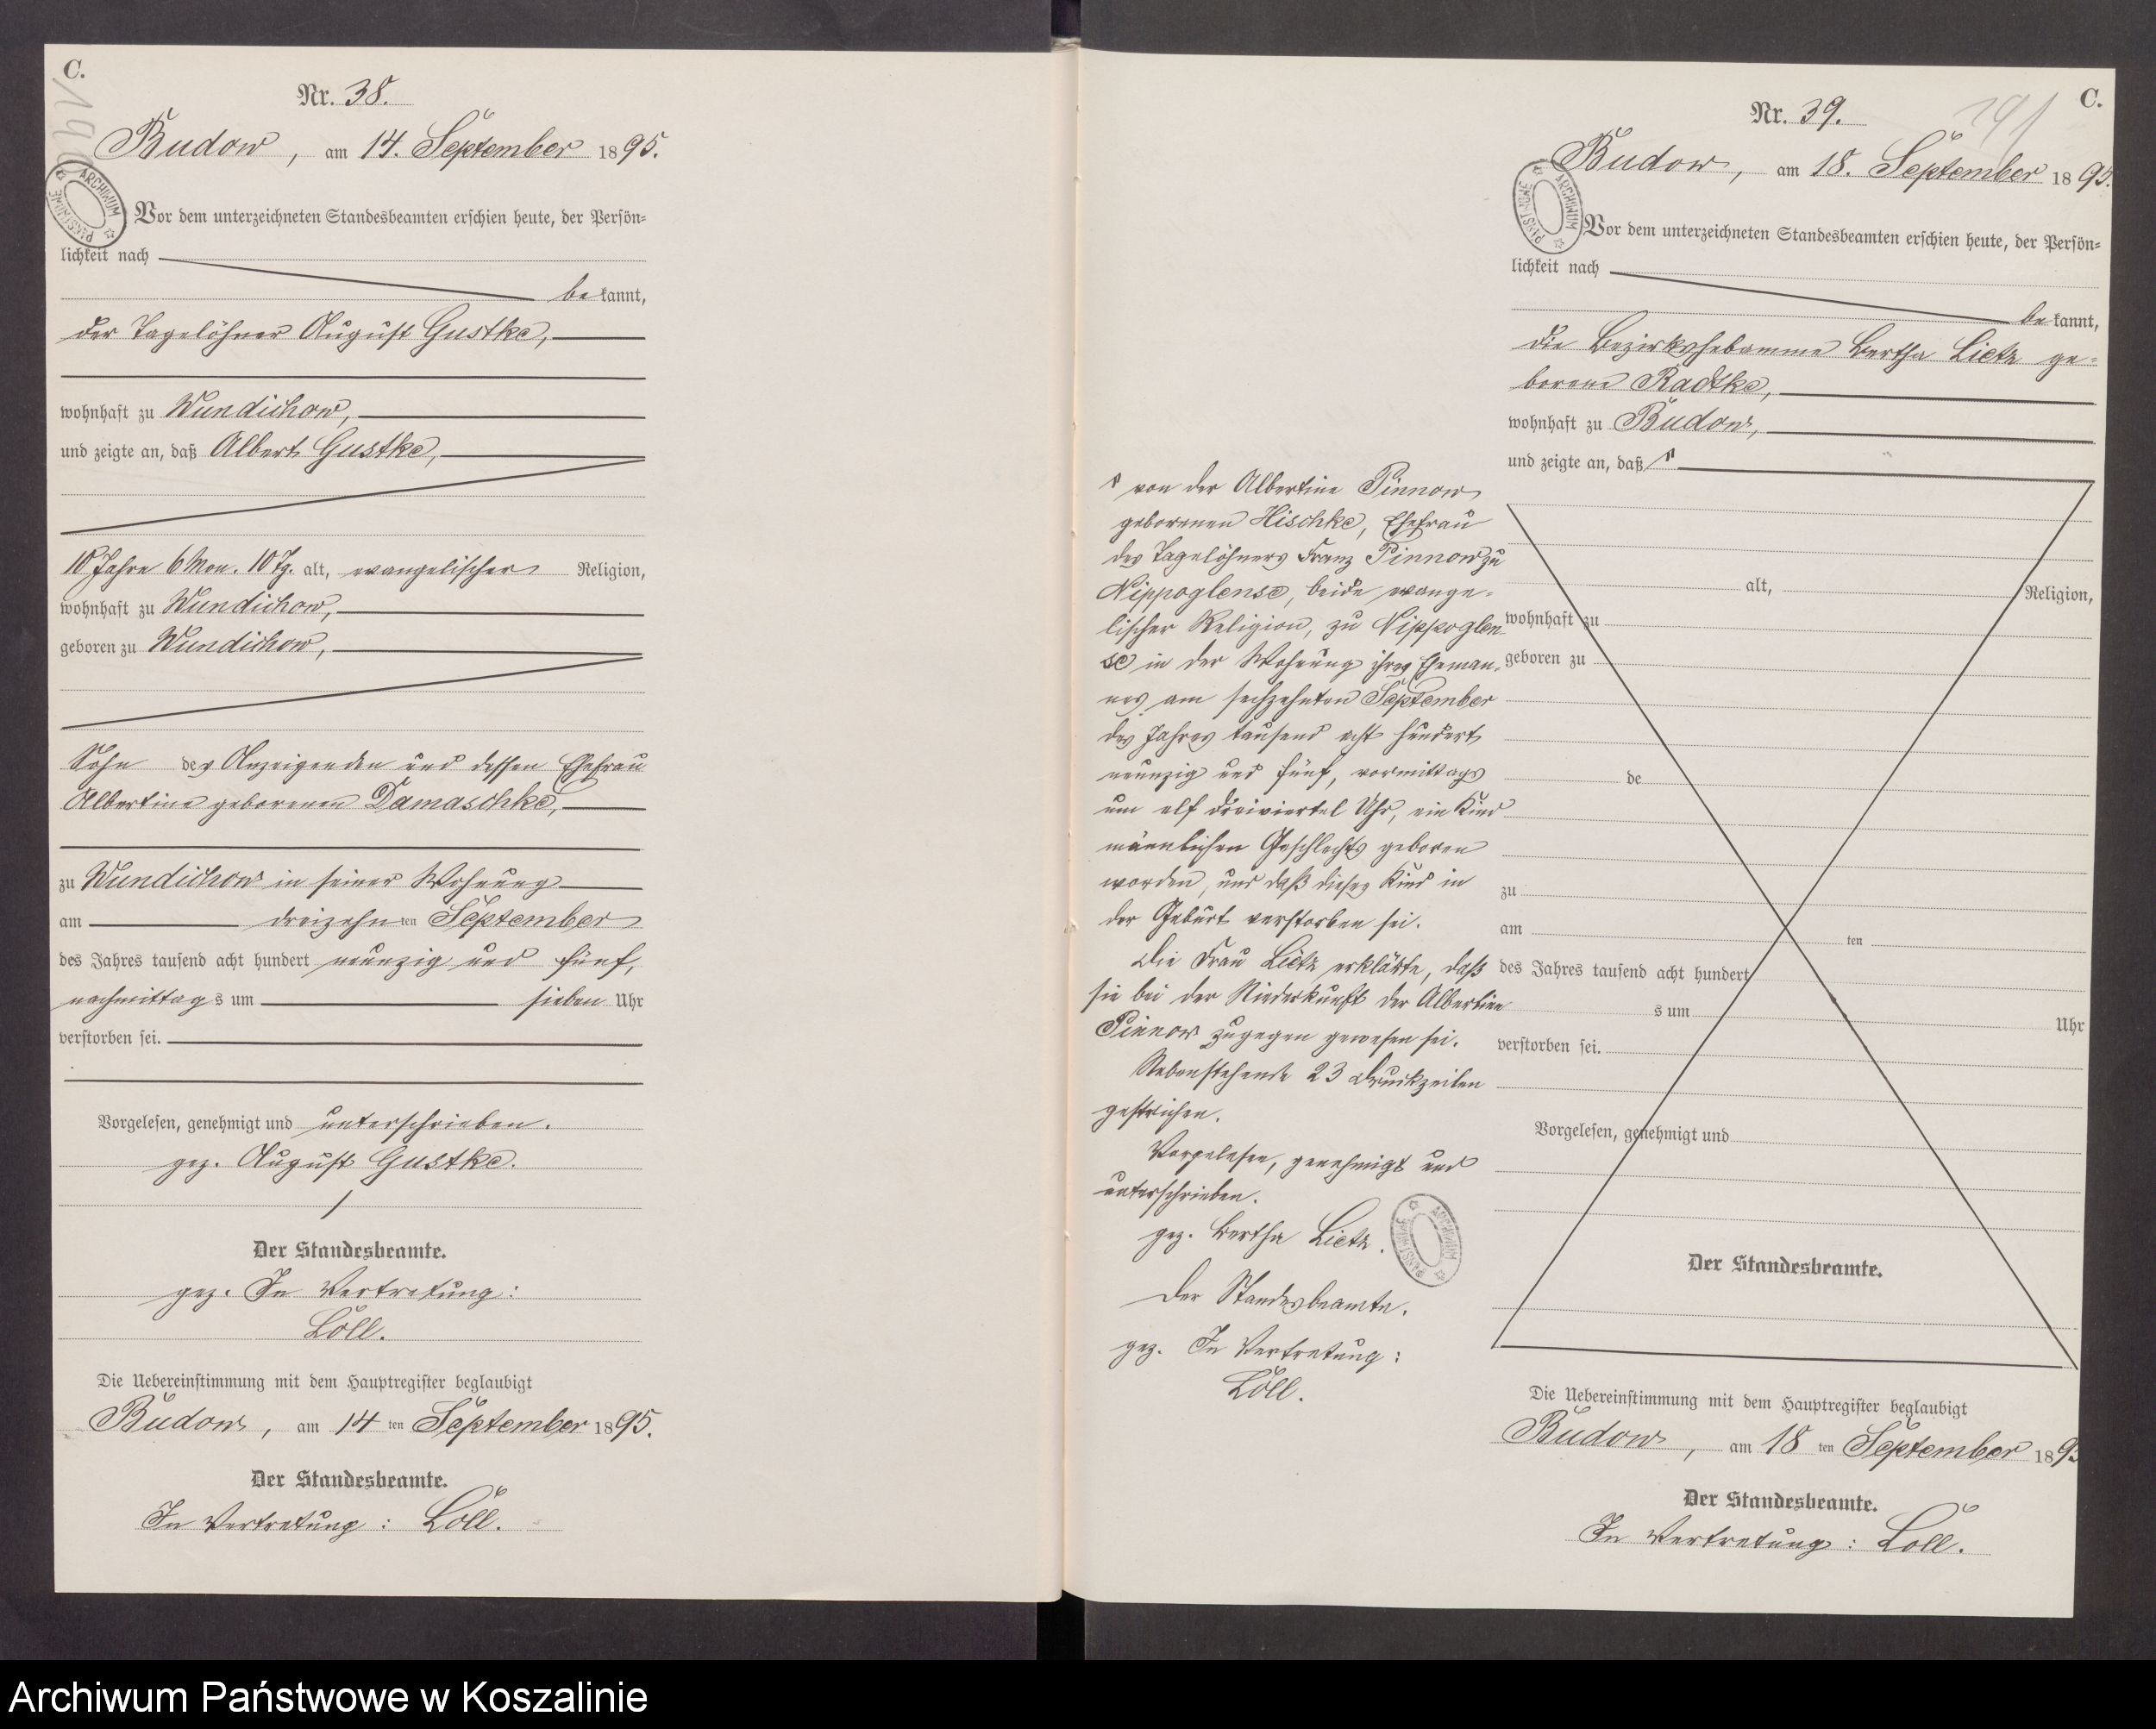 C.
190
Nr. 38.
Budow, am 14. September 1895.
ARCHIWUM PAŃSTWOWE
Vor dem unterzeichneten Standesbeamten erschien heute, der Persön=
lichkeit nach
bekannt,
der Tagelöhner August Gustke,
wohnhaft zu Wundichow,
und zeigte an, daß Albert Gustke,
10 Jahre 6 Mon. 10 Tg. alt, evangelischer Religion,
wohnhaft zu Wundichow,
geboren zu Wundichow,
Sohn des Anzeigenden und dessen Ehefrau
Albertine geborenen Damaschke,
zu Wundichow in seiner Wohnung
am dreizehnten September
des Jahres tausend acht hundert neunzig und fünf,
nachmittags um sieben Uhr
verstorben sei.
Vorgelesen, genehmigt und unterschrieben.
gez. August Gustke.
Der Standesbeamte.
gez. In Vertretung:
Löll.
Die Uebereinstimmung mit dem Hauptregister beglaubigt
Budow, am 14ten September 1895.
Der Standesbeamte.
In Vertretung: Löll.
C.
191
Nr. 39.
Budow, am 18. September 1895.
ARCHIWUM PAŃSTWOWE
Vor dem unterzeichneten Standesbeamten erschien heute, der Persön=
lichkeit nach
bekannt,
die Bezirkshebamme Bertha Lietz ge=
borene Radtke,
wohnhaft zu Budow,
und zeigte an, daß
von der Albertine Pinnow
geborenen Hischke, Ehefrau
des Tagelöhners Franz Pinnow zu
Nippoglense, beide evange-
lischer Religion, zu Nippoglen-
se in der Wohnung ihres Eheman-
nes am sechzehnten September
des Jahres tausend acht hundert
neunzig und fünf, vormittags
um elf dreiviertel Uhr, ein Kind
männlichen Geschlechts geboren
worden, und daß dieses Kind in
der Geburt verstorben sei.
Die Frau Lietz erklärte, daß
sie bei der Niederkunft der Albertine
Pinnow zugegen gewesen sei.
Nebenstehende 23 Druckzeilen
gestrichen.
Vorgelesen, genehmigt und
unterschrieben.
gez. Bertha Lietz.
ARCHIWUM PAŃSTWOWE
Der Standesbeamte.
gez. In Vertretung:
Löll.
alt, Religion,
wohnhaft zu
geboren zu
de
zu
am ten
des Jahres tausend acht hundert
s um Uhr
verstorben sei.
Vorgelesen, genehmigt und
Der Standesbeamte.
Die Uebereinstimmung mit dem Hauptregister beglaubigt
Budow, am 18ten September 189
Der Standesbeamte.
In Vertretung: Löll.
Archiwum Państwowe w Koszalinie